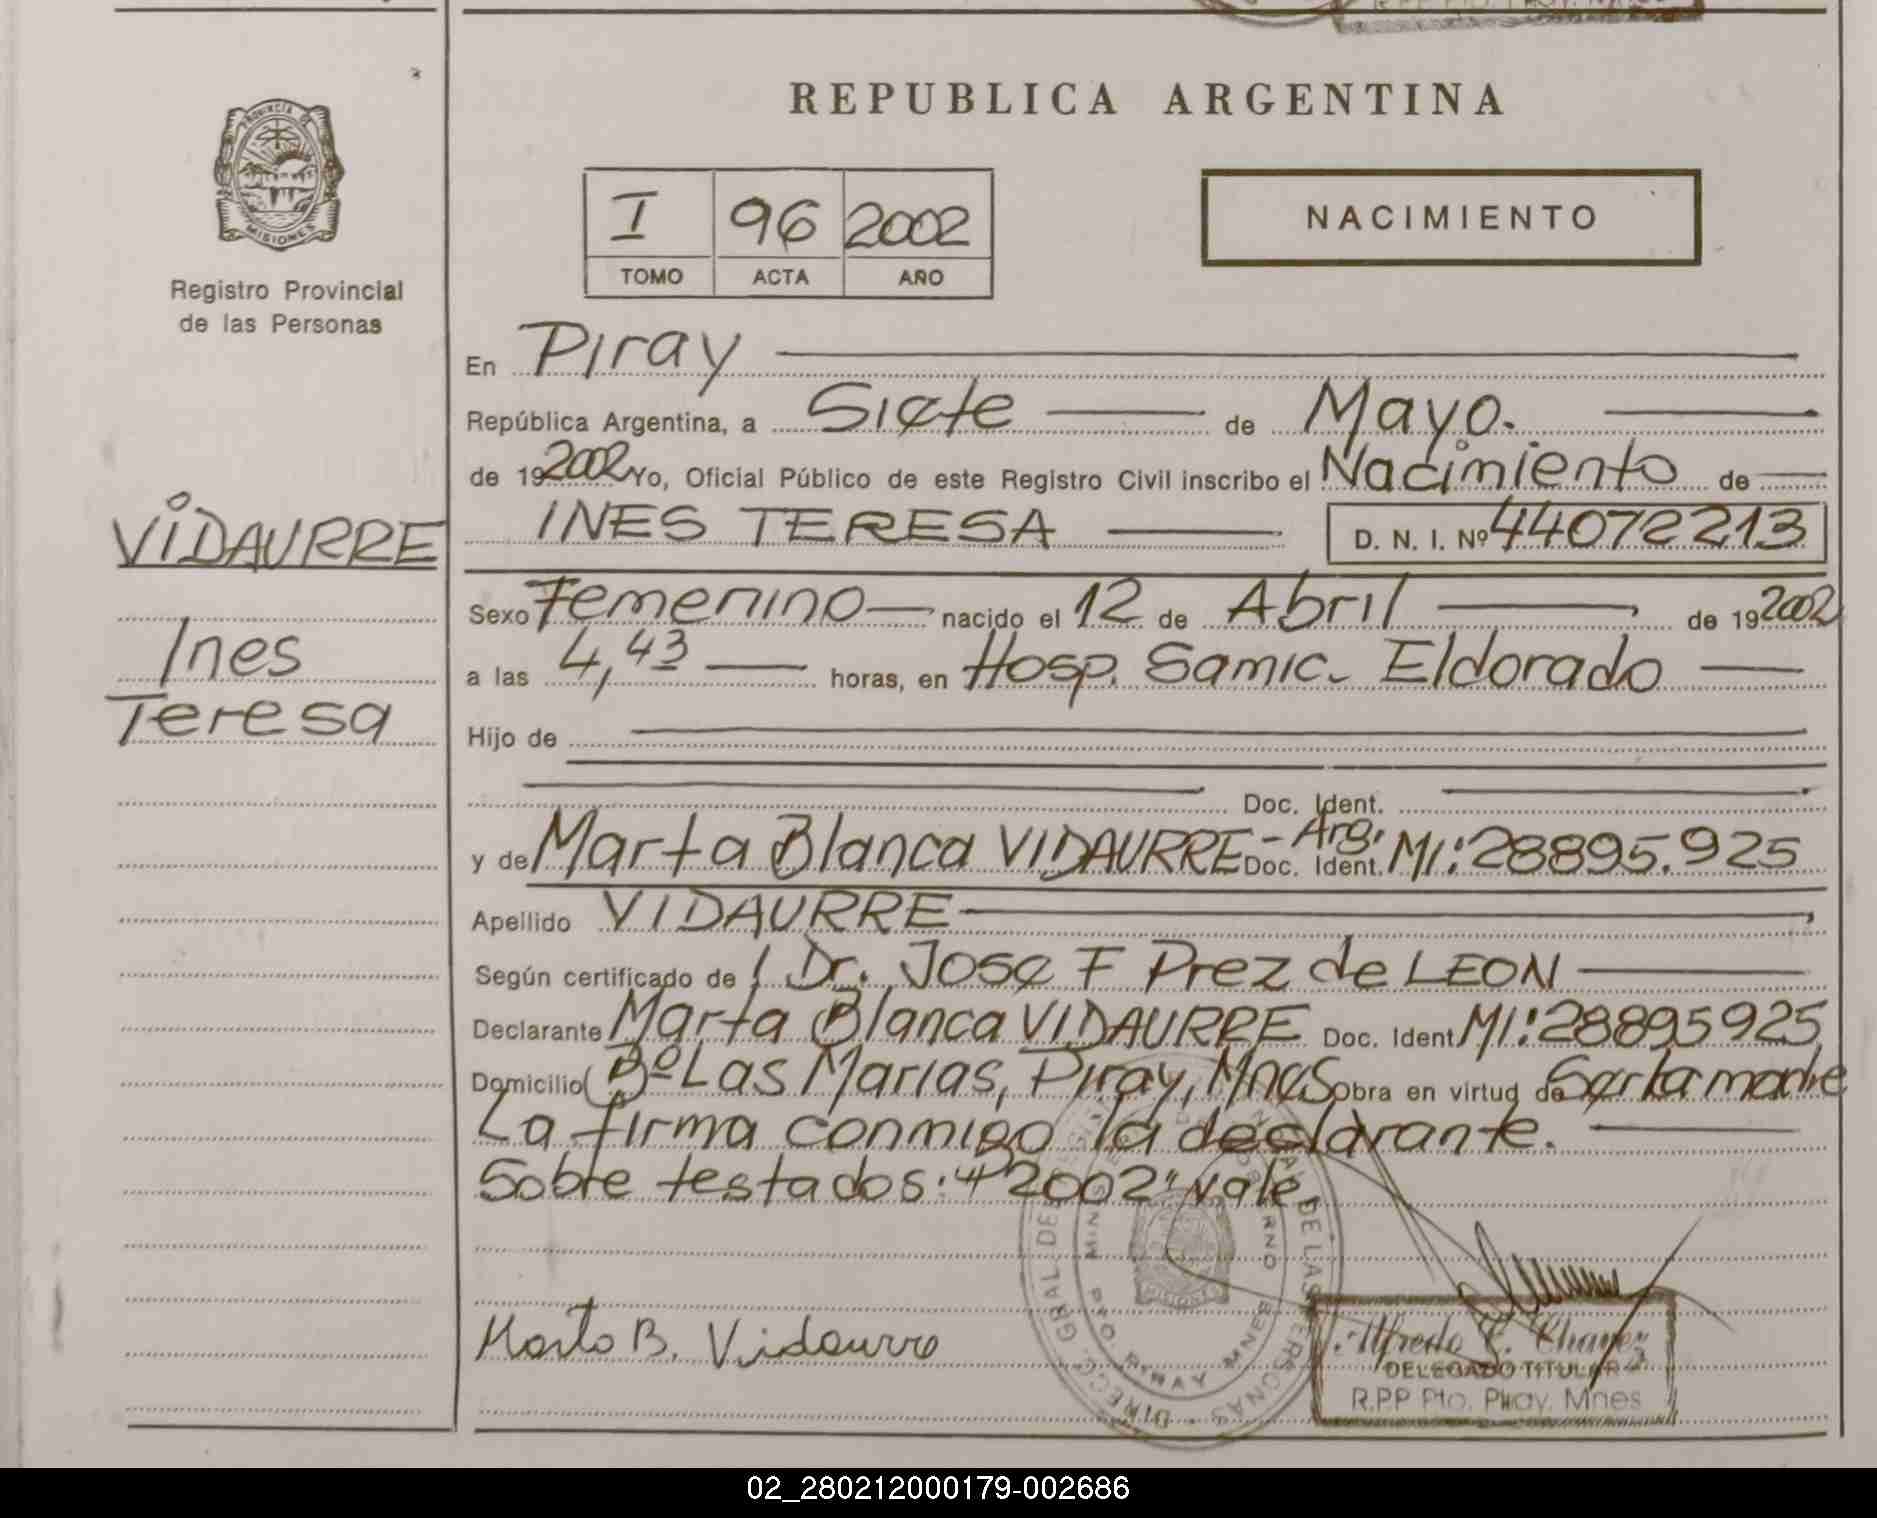 REPUBLICA ARGENTINA
PROVINCIA DE
MISIONES
Registro Provincial
de las Personas
I 96 2002
TOMO ACTA AÑO
NACIMIENTO
En Piray
República Argentina, a Siete de Mayo.
de 19 2002 Yo, Oficial Público de este Registro Civil inscribo el Nacimiento de
INES TERESA D. N. I. Nº 44072213
VIDAURRE
Ines
Teresa
Sexo Femenino nacido el 12 de Abril de 19 2002
a las 4,43 horas, en Hosp. Samic. Eldorado
Hijo de
Doc. Ident.
y de Marta Blanca VIDAURRE - Arg. Doc. Ident. MI: 28895.925
Apellido VIDAURRE
Según certificado de l Dr. Jose F Prez de LEON
Declarante Marta Blanca VIDAURRE Doc. Ident MI: 28895925
Domicilio Bº Las Marias, Piray, Mnes Obra en virtud de Ser la madre
La firma conmigo la declarante.
Sobre testados: "2002" vale.
Marta B. Vidaurre
DIRECC. GRAL DE LAS PERSONAS
PTO. PIRAY MNES
MISIONES
Alfredo Chavez
DELEGADO TITULAR
R.P.P Pto. Piray. Mnes
02_280212000179-002686